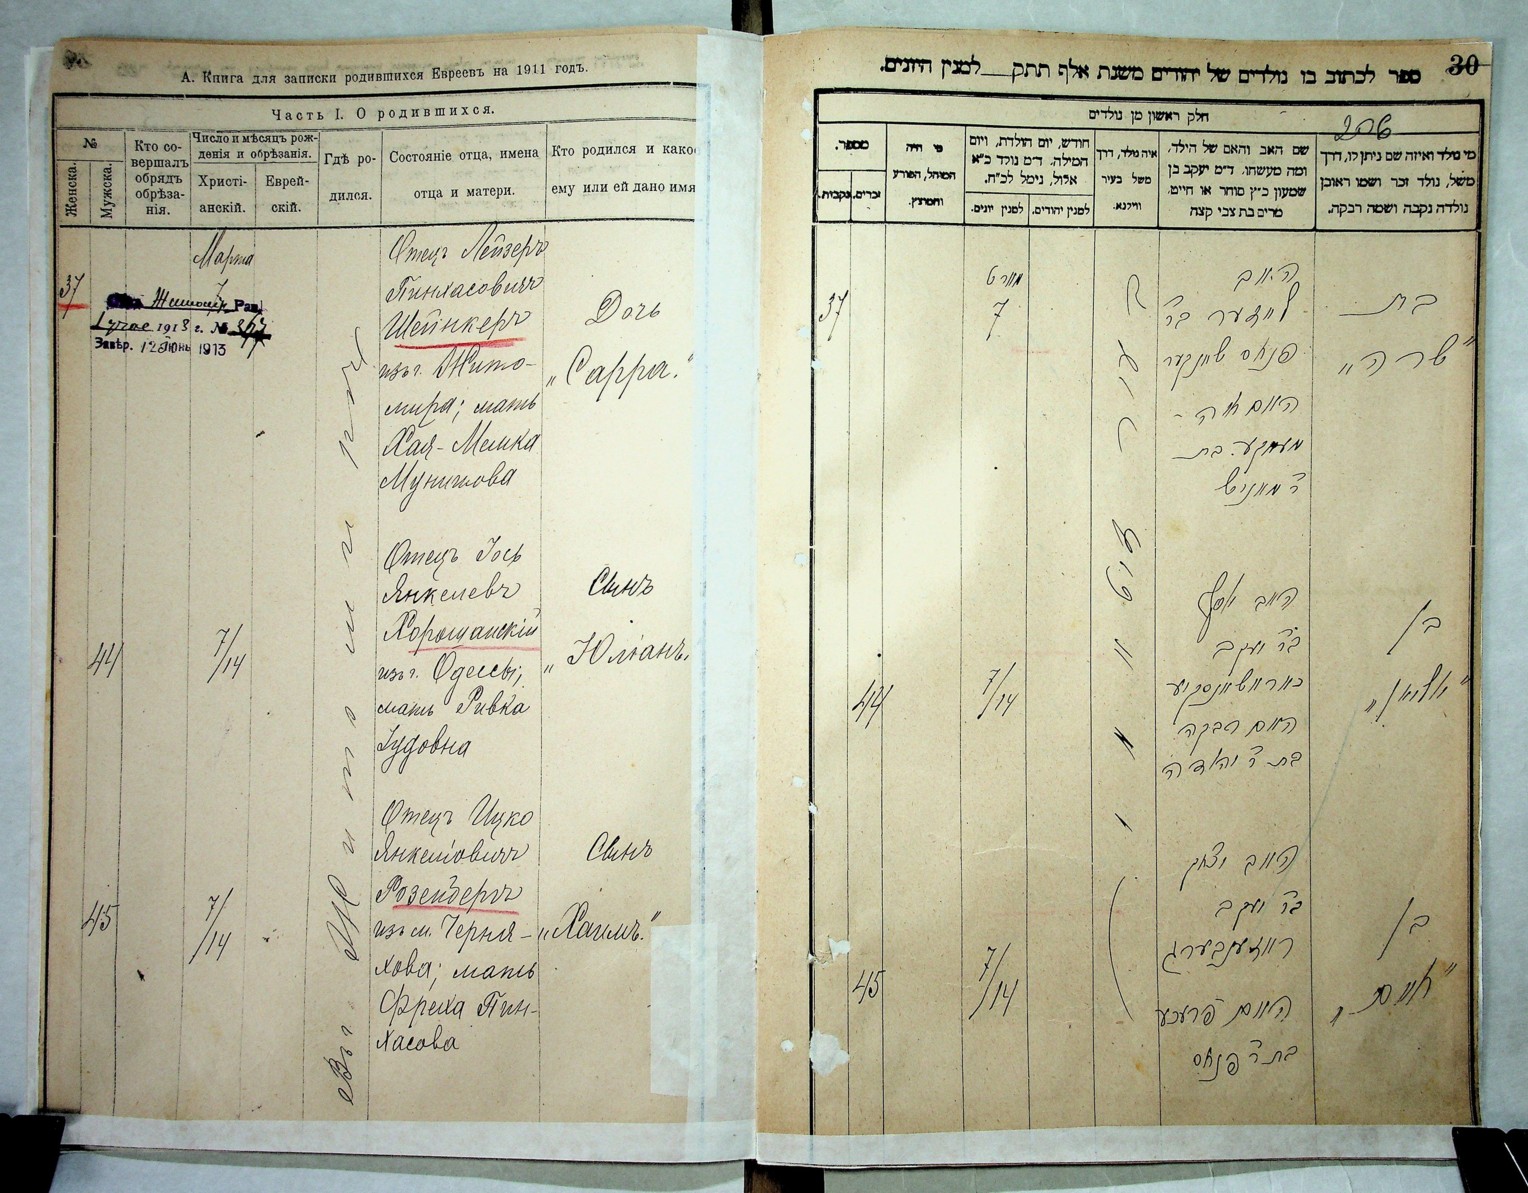 А. Книга для записки родившихся Евреевъ на 1911 годъ.
Часть I. О родившихся.
№
Женска.
Мужска.
Кто со-
вершалъ
обрядъ
обрѣза-
нія.
Число и мѣсяцъ рож-
денія и обрѣзанія.
Христі-
анскій.
Еврей-
скій.
Гдѣ ро-
дился.
Состояніе отца, имена
отца и матери.
Кто родился и како
ему или ей дано имя
Марта
37
7
1913 г. №
Завѣр. 12 Іюнь 1913
Въ г. Житомирѣ
Отецъ Лейзеръ
Пинхасовичъ
Шейнкеръ
изъ г. Жито-
мира; мать
Хая-Малка
Мунишова
Дочь
„Сарра."
44
7/14
Отецъ Іось
Янкелевъ
Хорощанскій
изъ г. Одессы;
мать Ривка
Іудовна
Сынъ
„Юліанъ"
45
7/14
Отецъ Ицко
Янкелiовичъ
Розенбергъ
изъ м. Черня-
хова; мать
Фреха Пин-
хасова
Сынъ
„Хаимъ."
30
ספר לכתוב בו נולדים של יהודים משנת אלף תתק למנין היונים.
חלק ראשון מן נולדים
מספר.
נקבות.
זכרים.
מי היה
המוהל, הפורע
והמוצץ.
חודש, יום הולדת, ויום
המילה. ד״מ נולד כ״א
אלול, נימל לכ״ח.
למנין יונים.
למנין יהודים.
איה נולד, דרך
משל בעיר
ווילנא.
שם האב והאם של הילד.
ומה מעשהו. ד״מ יעקב בן
שמעון כ״ץ סוחר או חייט.
מרים בת צבי קצה
מי נולד ואיזה שם ניתן לו, דרך
משל, נולד זכר ושמו ראובן
נולדה נקבה ושמה רבקה.
37
מארט
7
האב
לייזער בר
פנחס שיינקער
האם חיה -
מאלקע בת
ר׳ מוניש
בת
„שרה"
44
7/14
האב יוסף
בר יעקב
כאראשאנסקיע
האם רבקה
בת ר׳ יהודה
בן
„יוליאן"
45
7/14
האב יצחק
בר יעקב
ראזענבערג
האם פרעכע
בת ר׳ פנחס
בן
„חיים"